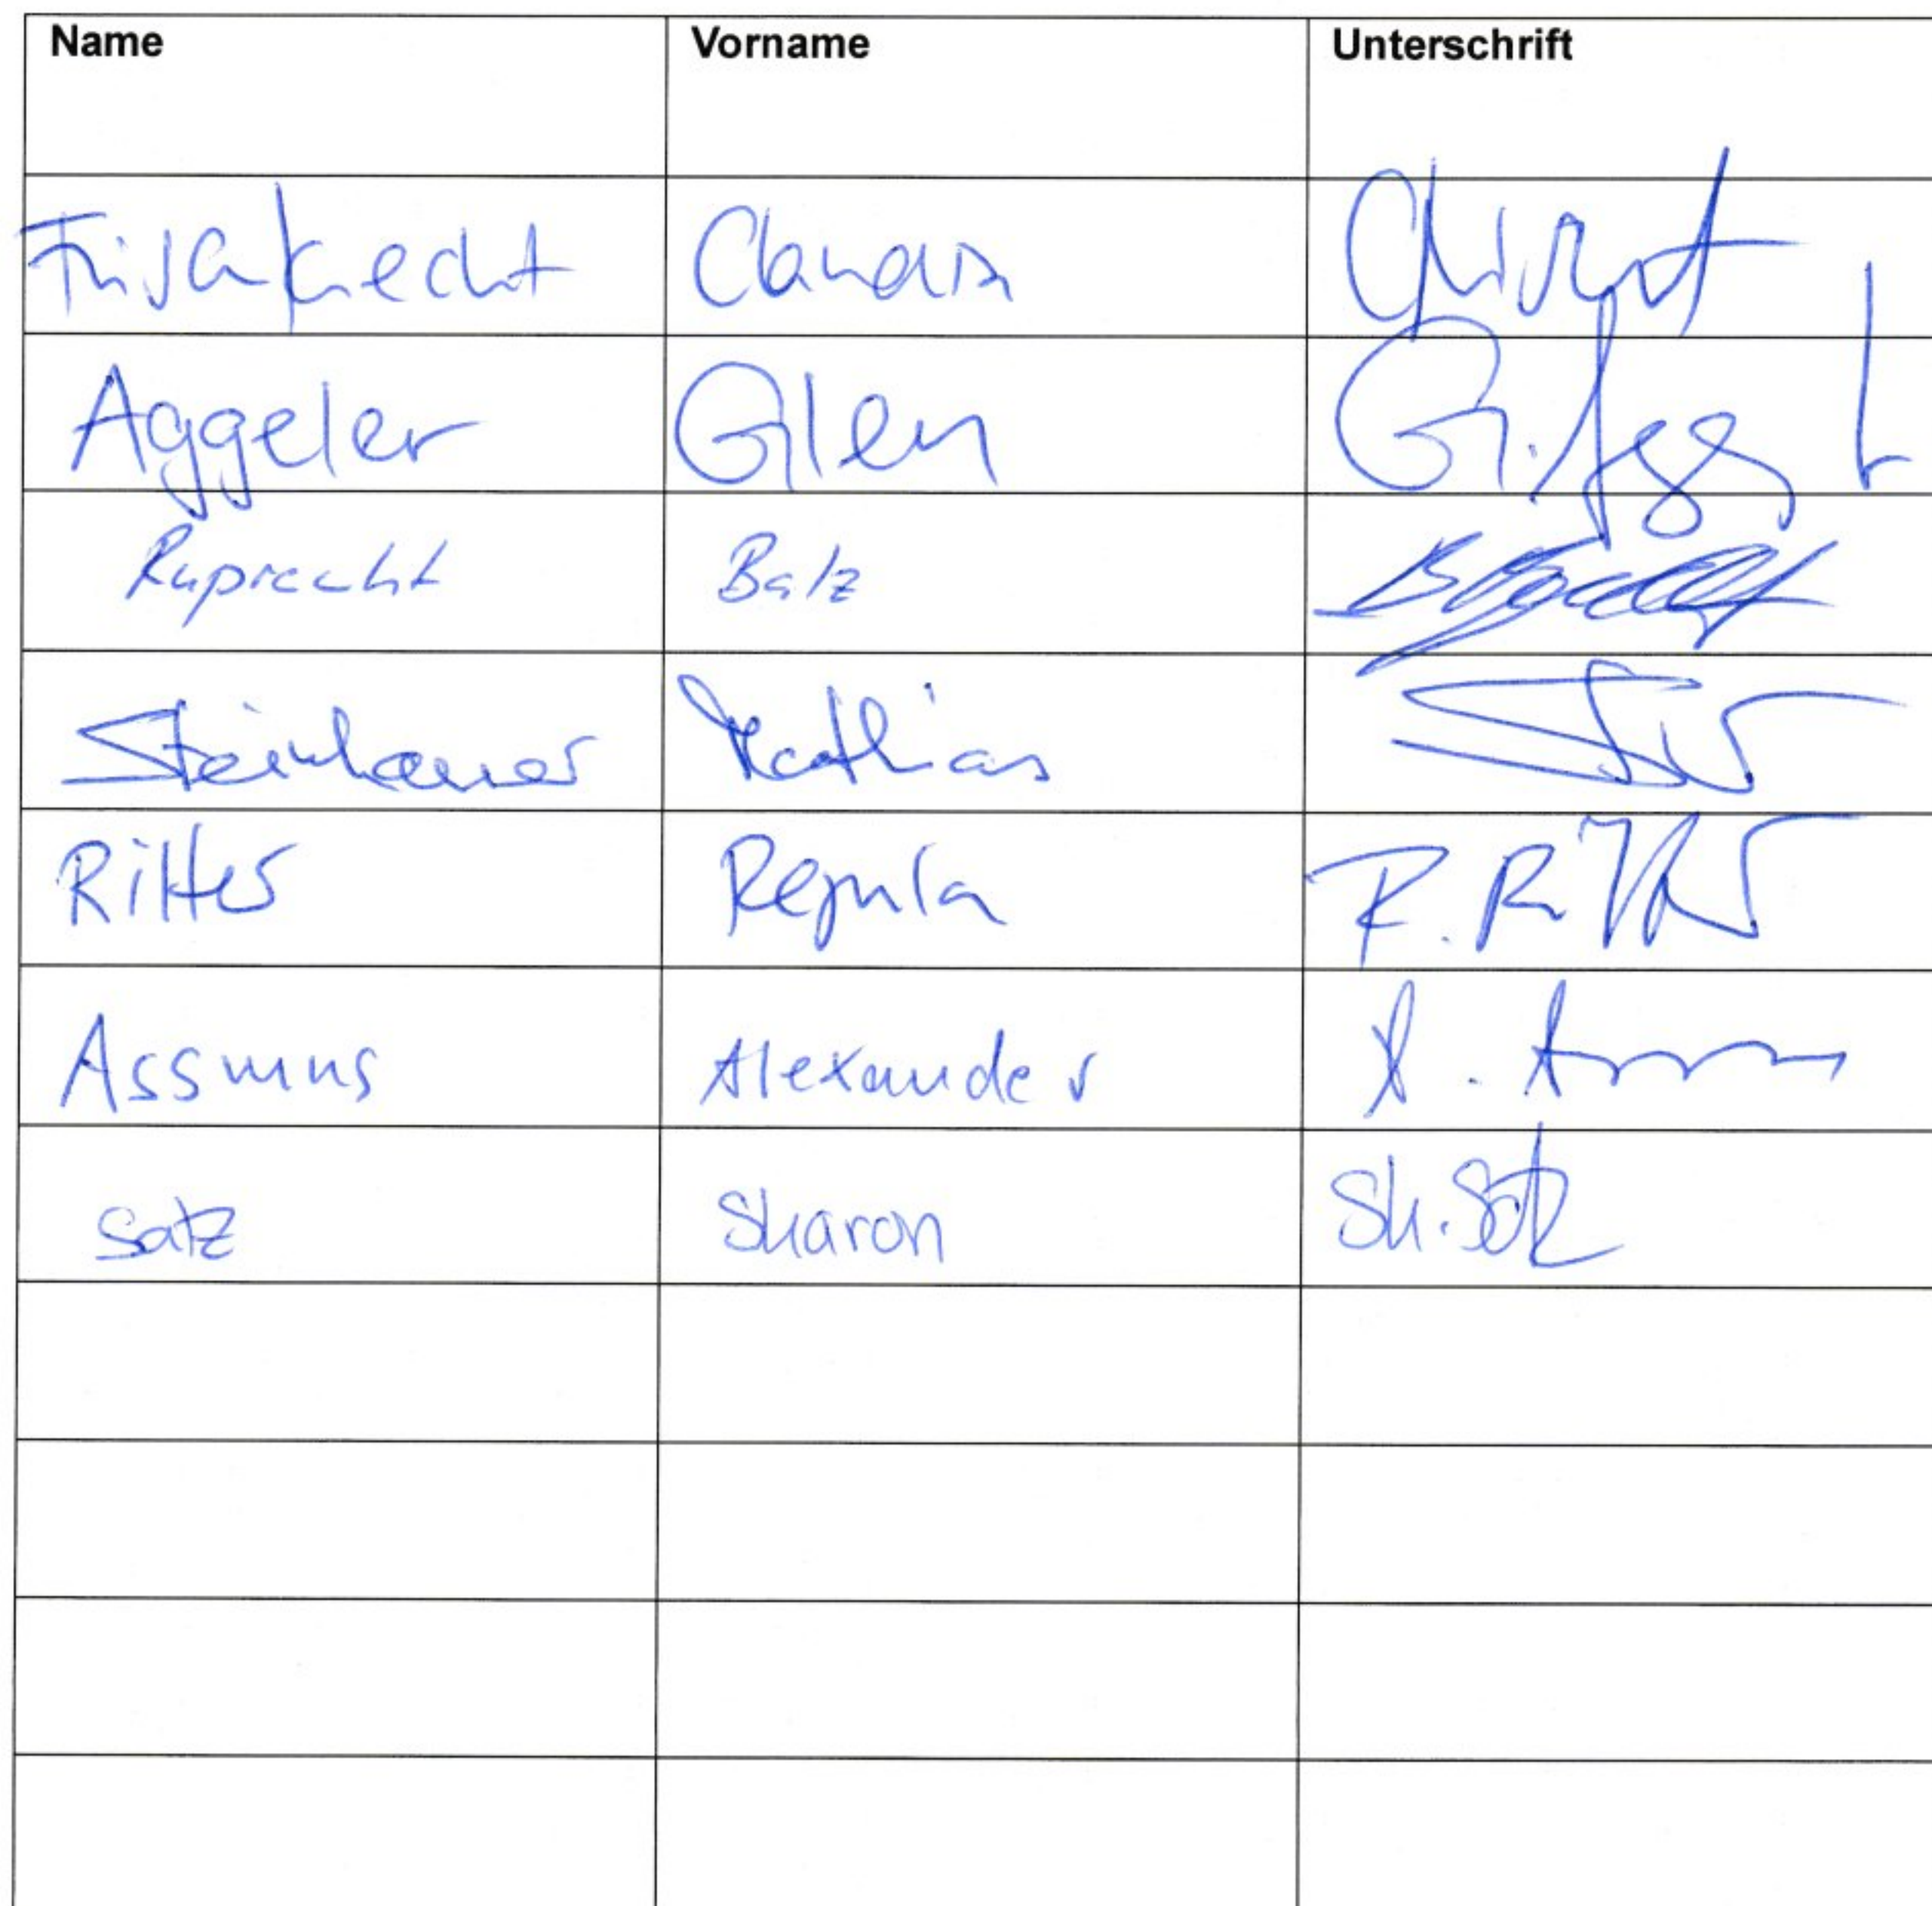 Name Vorname Unterschrift
Frischknecht Claudia
Aggeler Glen G. Agg
Ruprecht Balz
Steinhauer Mathias
Ritter Regula R. Ritter
Assmus Alexander A.
Satz Sharon Sh. Satz